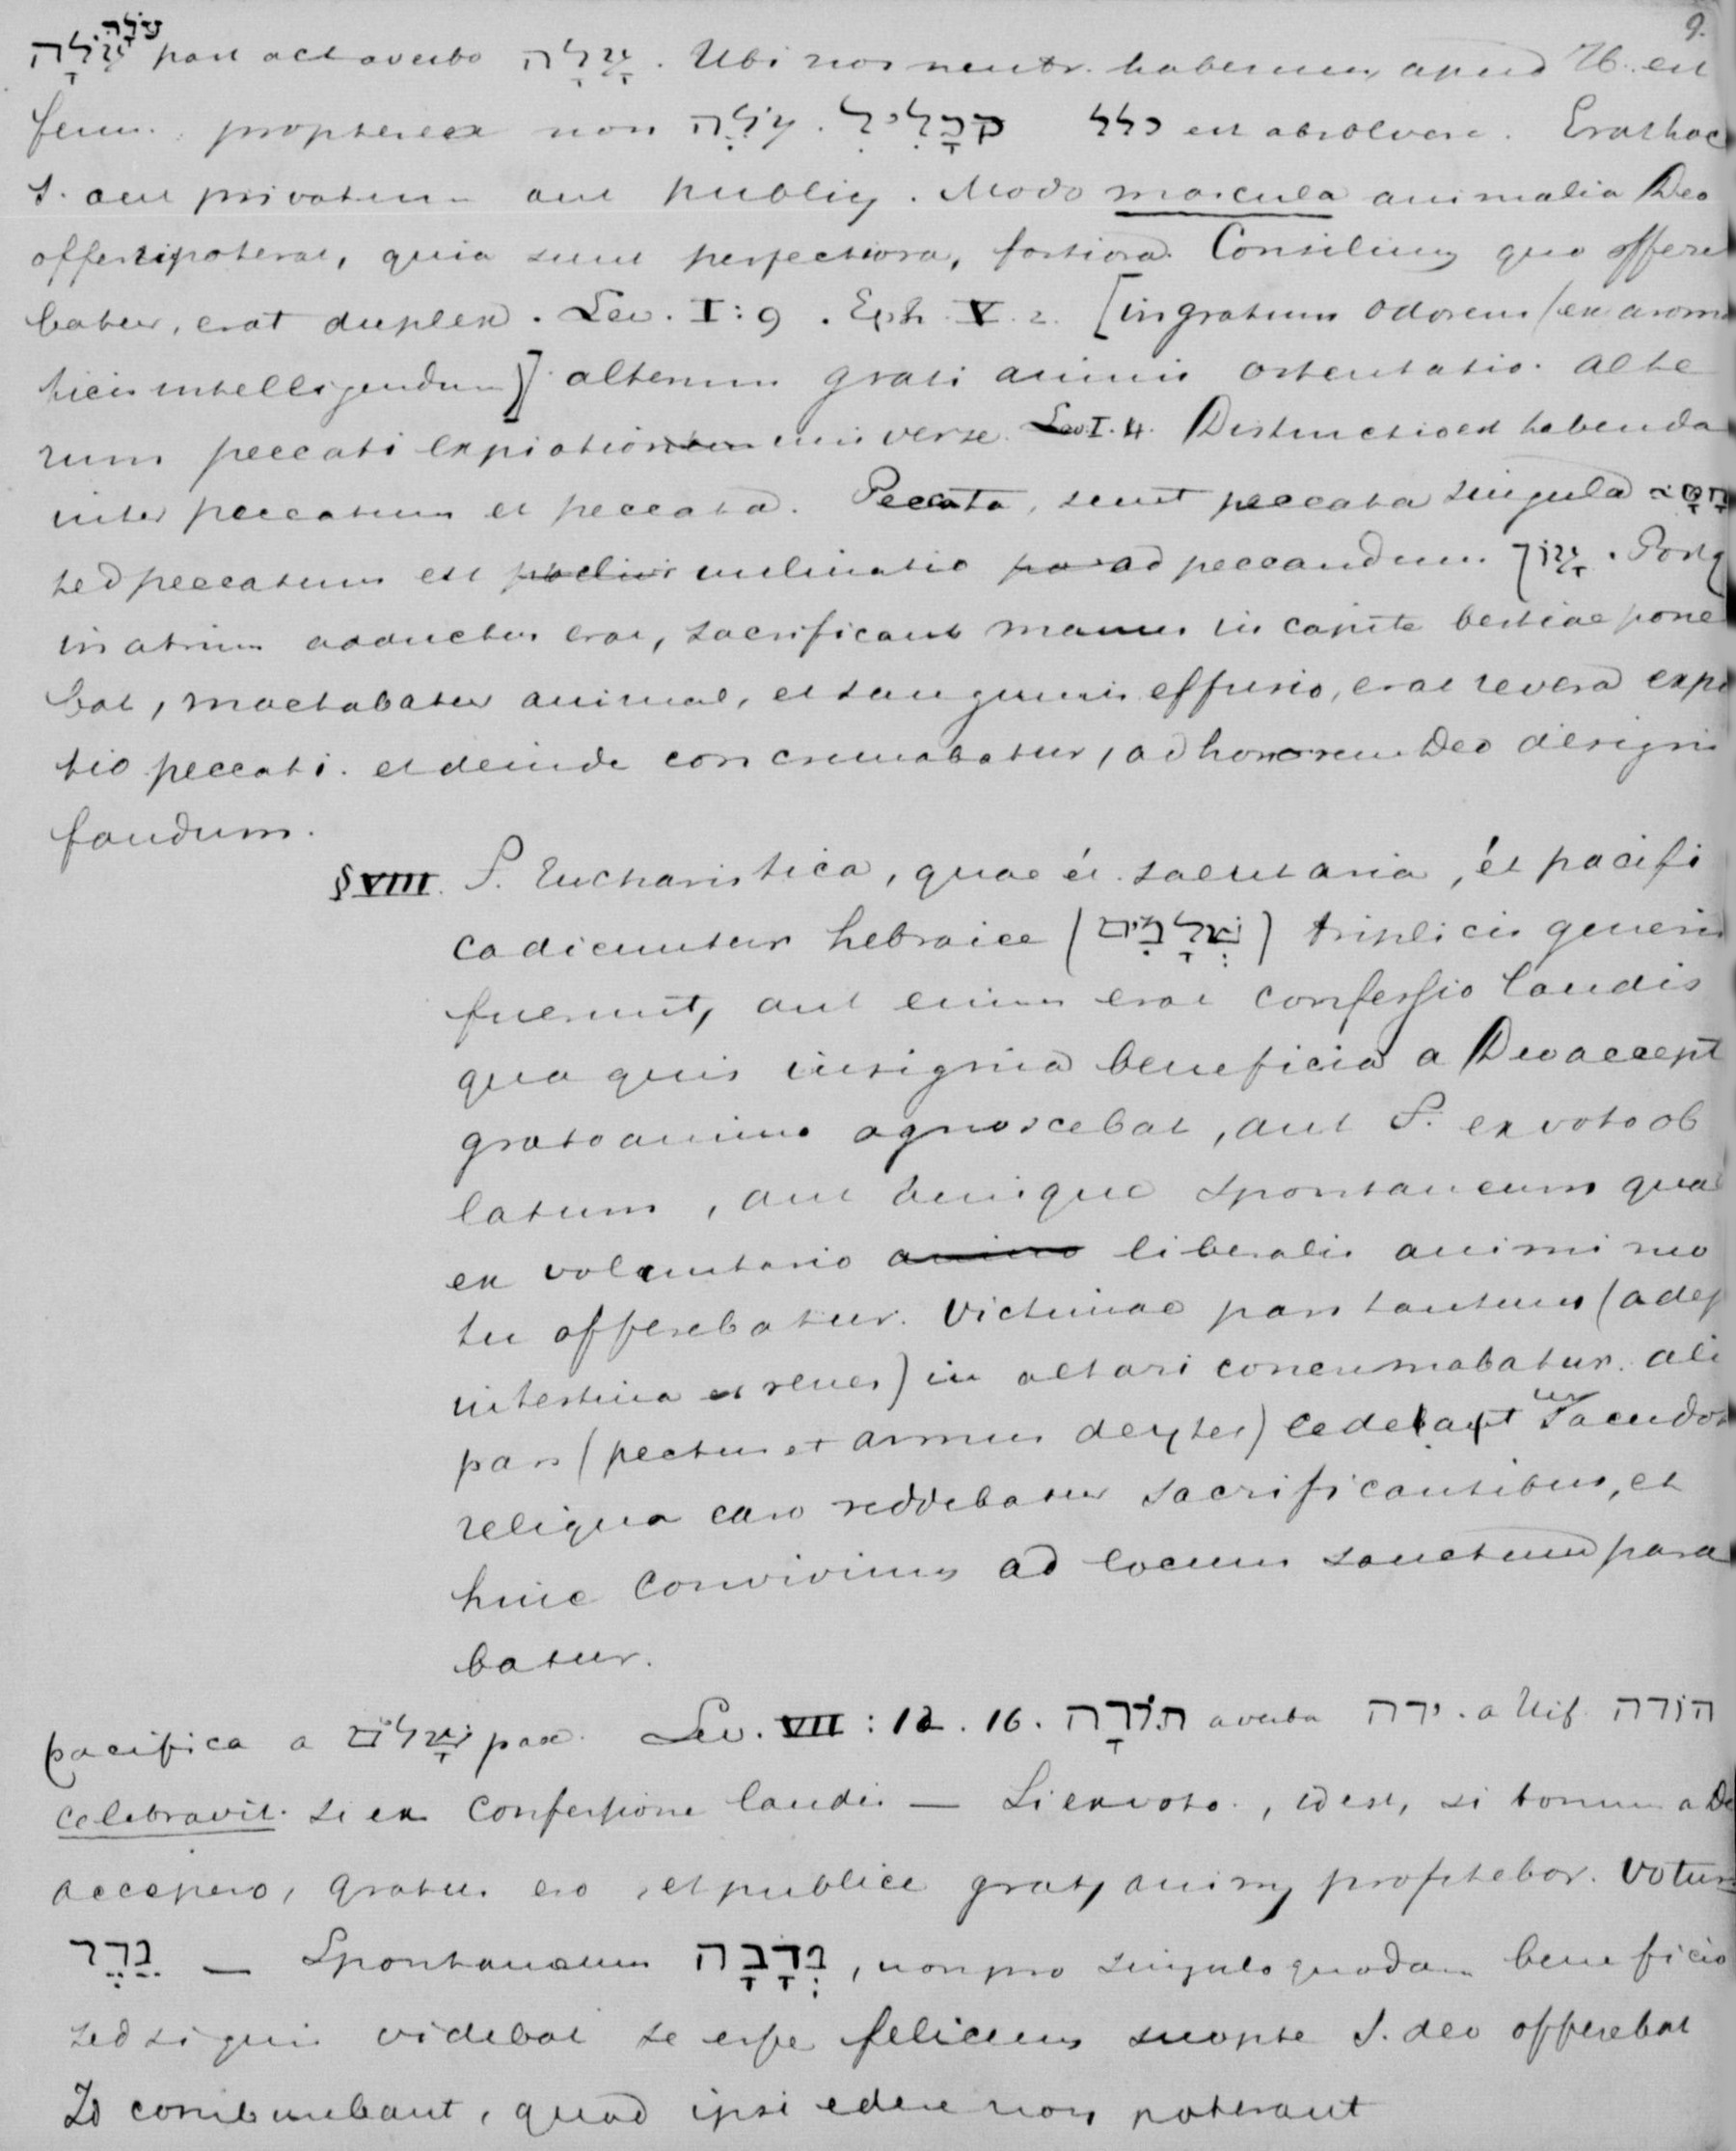 9.
עֹלָה
עוֹלָה part act a verbo עָלָה. Ubi nos neutr. habemus, apud H. est
fem. propterea non עוֹלֶה. כָּלִיל כלל est absolvere. Erat hoc
S. aut privatum aut publicŷ. Modo mascula animalia Deo
offerri poterat, quia sunt perfectiora, fortiora. Consilium quo offere
batur, erat duplex. Lev. I:9. Eph. V. 2. [in gratum odorem (ex aroma
ticis intelligendum)] alterum grati animi ostentatio. alte
rum peccati expiatio universe. Lev. I. 4. Distinctio est habenda
inter peccatum et peccata. Peccata, sunt peccata singula
sed peccatum est inclinatio ad peccandum עָוֹן. Postq
in atrium adductus erat, sacrificans manus in capite bestiae pone
bat, mactabatur animal, et sanguinis effusio, erat revera expi
tio peccati. et deinde concremabatur, ad honorem Deo designi
fandum.
§ VIII. S. Eucharistica, quae et salutaria, et pacifi
ca dicuntur hebraice (שְׁלָמִים) triplicis generis
fuerunt, aut enim erat confessio laudis
qua quis insignia beneficia a Deo accept
grato animo agnoscebat, aut S. ex voto ob
latum, aut denique spontaneum quod
ex voluntario liberalis animi mo
tu offerebatur. Victimae pars tantum (adeps
intestina et renes) in altari concremabatur. ali
pars (pectus et armus dexter) cedebatur Sacerdot
reliqua caro reddebatur sacrificantibus, et
hinc convivium ad locum sanctum para
batur.
pacifica a שָׁלוֹם pax. Lev. VII : 12. 16. תּוֹדָה a verbo ידה. a Hif. הודה
celebravit. si ex confessione laudis — Si ex voto, id est, si bonum a De
accepero, gratus ero et publice gratŷ animŷ profitebor. Votum
נֵדֶר — Spontaneum נְדָבָה, non pro singulo quodam beneficio
sed si quis videbat se esse felicem suopte S. deo offerebat
Id comburebant, quod ipsi edere non poterant